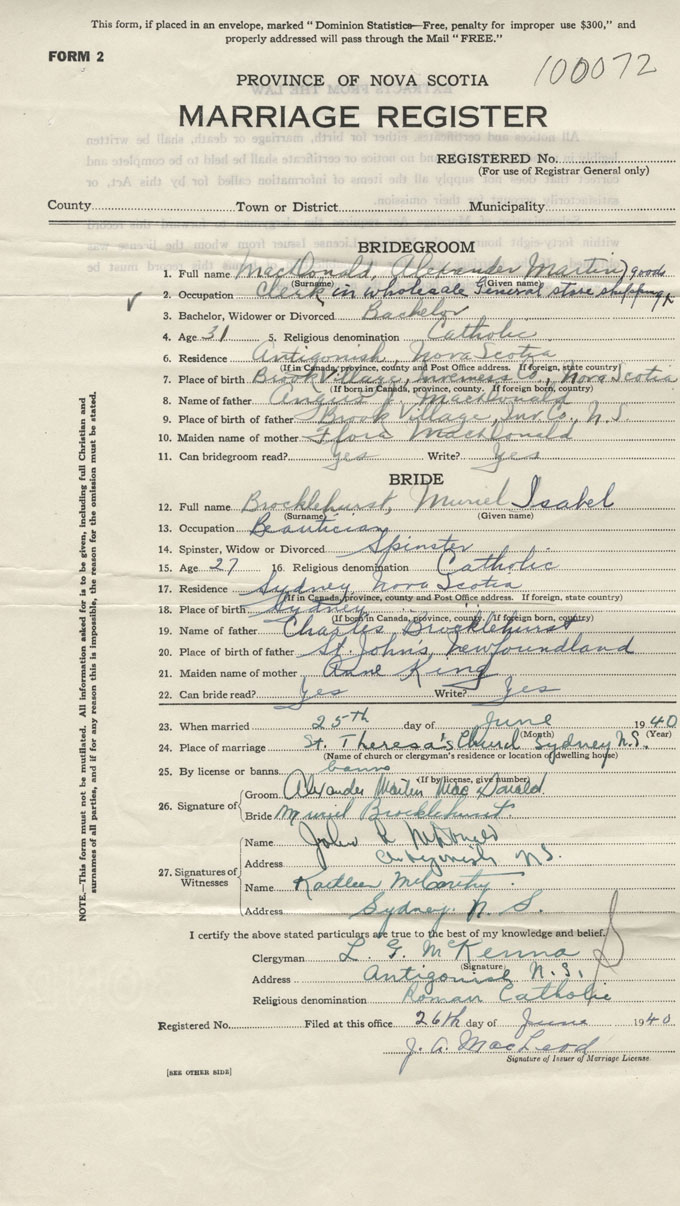 This form, if placed in an envelope, marked "Dominion Statistics—Free, penalty for improper use $300," and
properly addressed will pass through the Mail "FREE."
FORM 2
100072
PROVINCE OF NOVA SCOTIA
MARRIAGE REGISTER
REGISTERED No.
(For use of Registrar General only)
County Town or District Municipality
BRIDEGROOM
1. Full name MacDonald, Alexander Martin) goods
(Surname) (Given name)
2. Occupation Clerk in wholesale General store shipping
3. Bachelor, Widower or Divorced Bachelor
4. Age 31 5. Religious denomination Catholic
6. Residence Antigonish, Nova Scotia
(If in Canada, province, county and Post Office address. If foreign, state country)
7. Place of birth Brook Village, Inverness Co., Nova Scotia
(If born in Canada, province, county. If foreign born, country)
8. Name of father Angus J. MacDonald
9. Place of birth of father Brook Village, Inv. Co., N.S
10. Maiden name of mother Flora MacDonald
11. Can bridegroom read? Yes Write? Yes
BRIDE
12. Full name Brocklehurst, Muriel Isabel
(Surname) (Given name)
13. Occupation Beautician
14. Spinster, Widow or Divorced Spinster
15. Age 27 16. Religious denomination Catholic
17. Residence Sydney, Nova Scotia
(If in Canada, province, county and Post Office address. If foreign, state country)
18. Place of birth Sydney " "
(If born in Canada, province, county. If foreign born, country)
19. Name of father Charles Brocklehurst
20. Place of birth of father St. John's, Newfoundland
21. Maiden name of mother Anne King
22. Can bride read? Yes Write? Yes
23. When married 25th day of June 1940
(Month) (Year)
24. Place of marriage St. Theresa's Church Sydney N.S.
(Name of church or clergyman's residence or location of dwelling house)
25. By license or banns banns
(If by license, give number)
26. Signature of
Groom Alexander Martin MacDonald
Bride Muriel Brocklehurst.
27. Signatures of Witnesses
Name John R McDonald
Address Antigonish NS.
Name Kathleen McCarthy
Address Sydney. N. S.
I certify the above stated particulars are true to the best of my knowledge and belief.
Clergyman L. G. McKenna
(Signature)
Address Antigonish N.S.
Religious denomination Roman Catholic
Registered No. Filed at this office 26th day of June 1940
J. A. MacLeod
Signature of Issuer of Marriage License
[SEE OTHER SIDE]
NOTE.—This form must not be mutilated. All information asked for is to be given, including full Christian and
surnames of all parties, and if for any reason this is impossible, the reason for the omission must be stated.